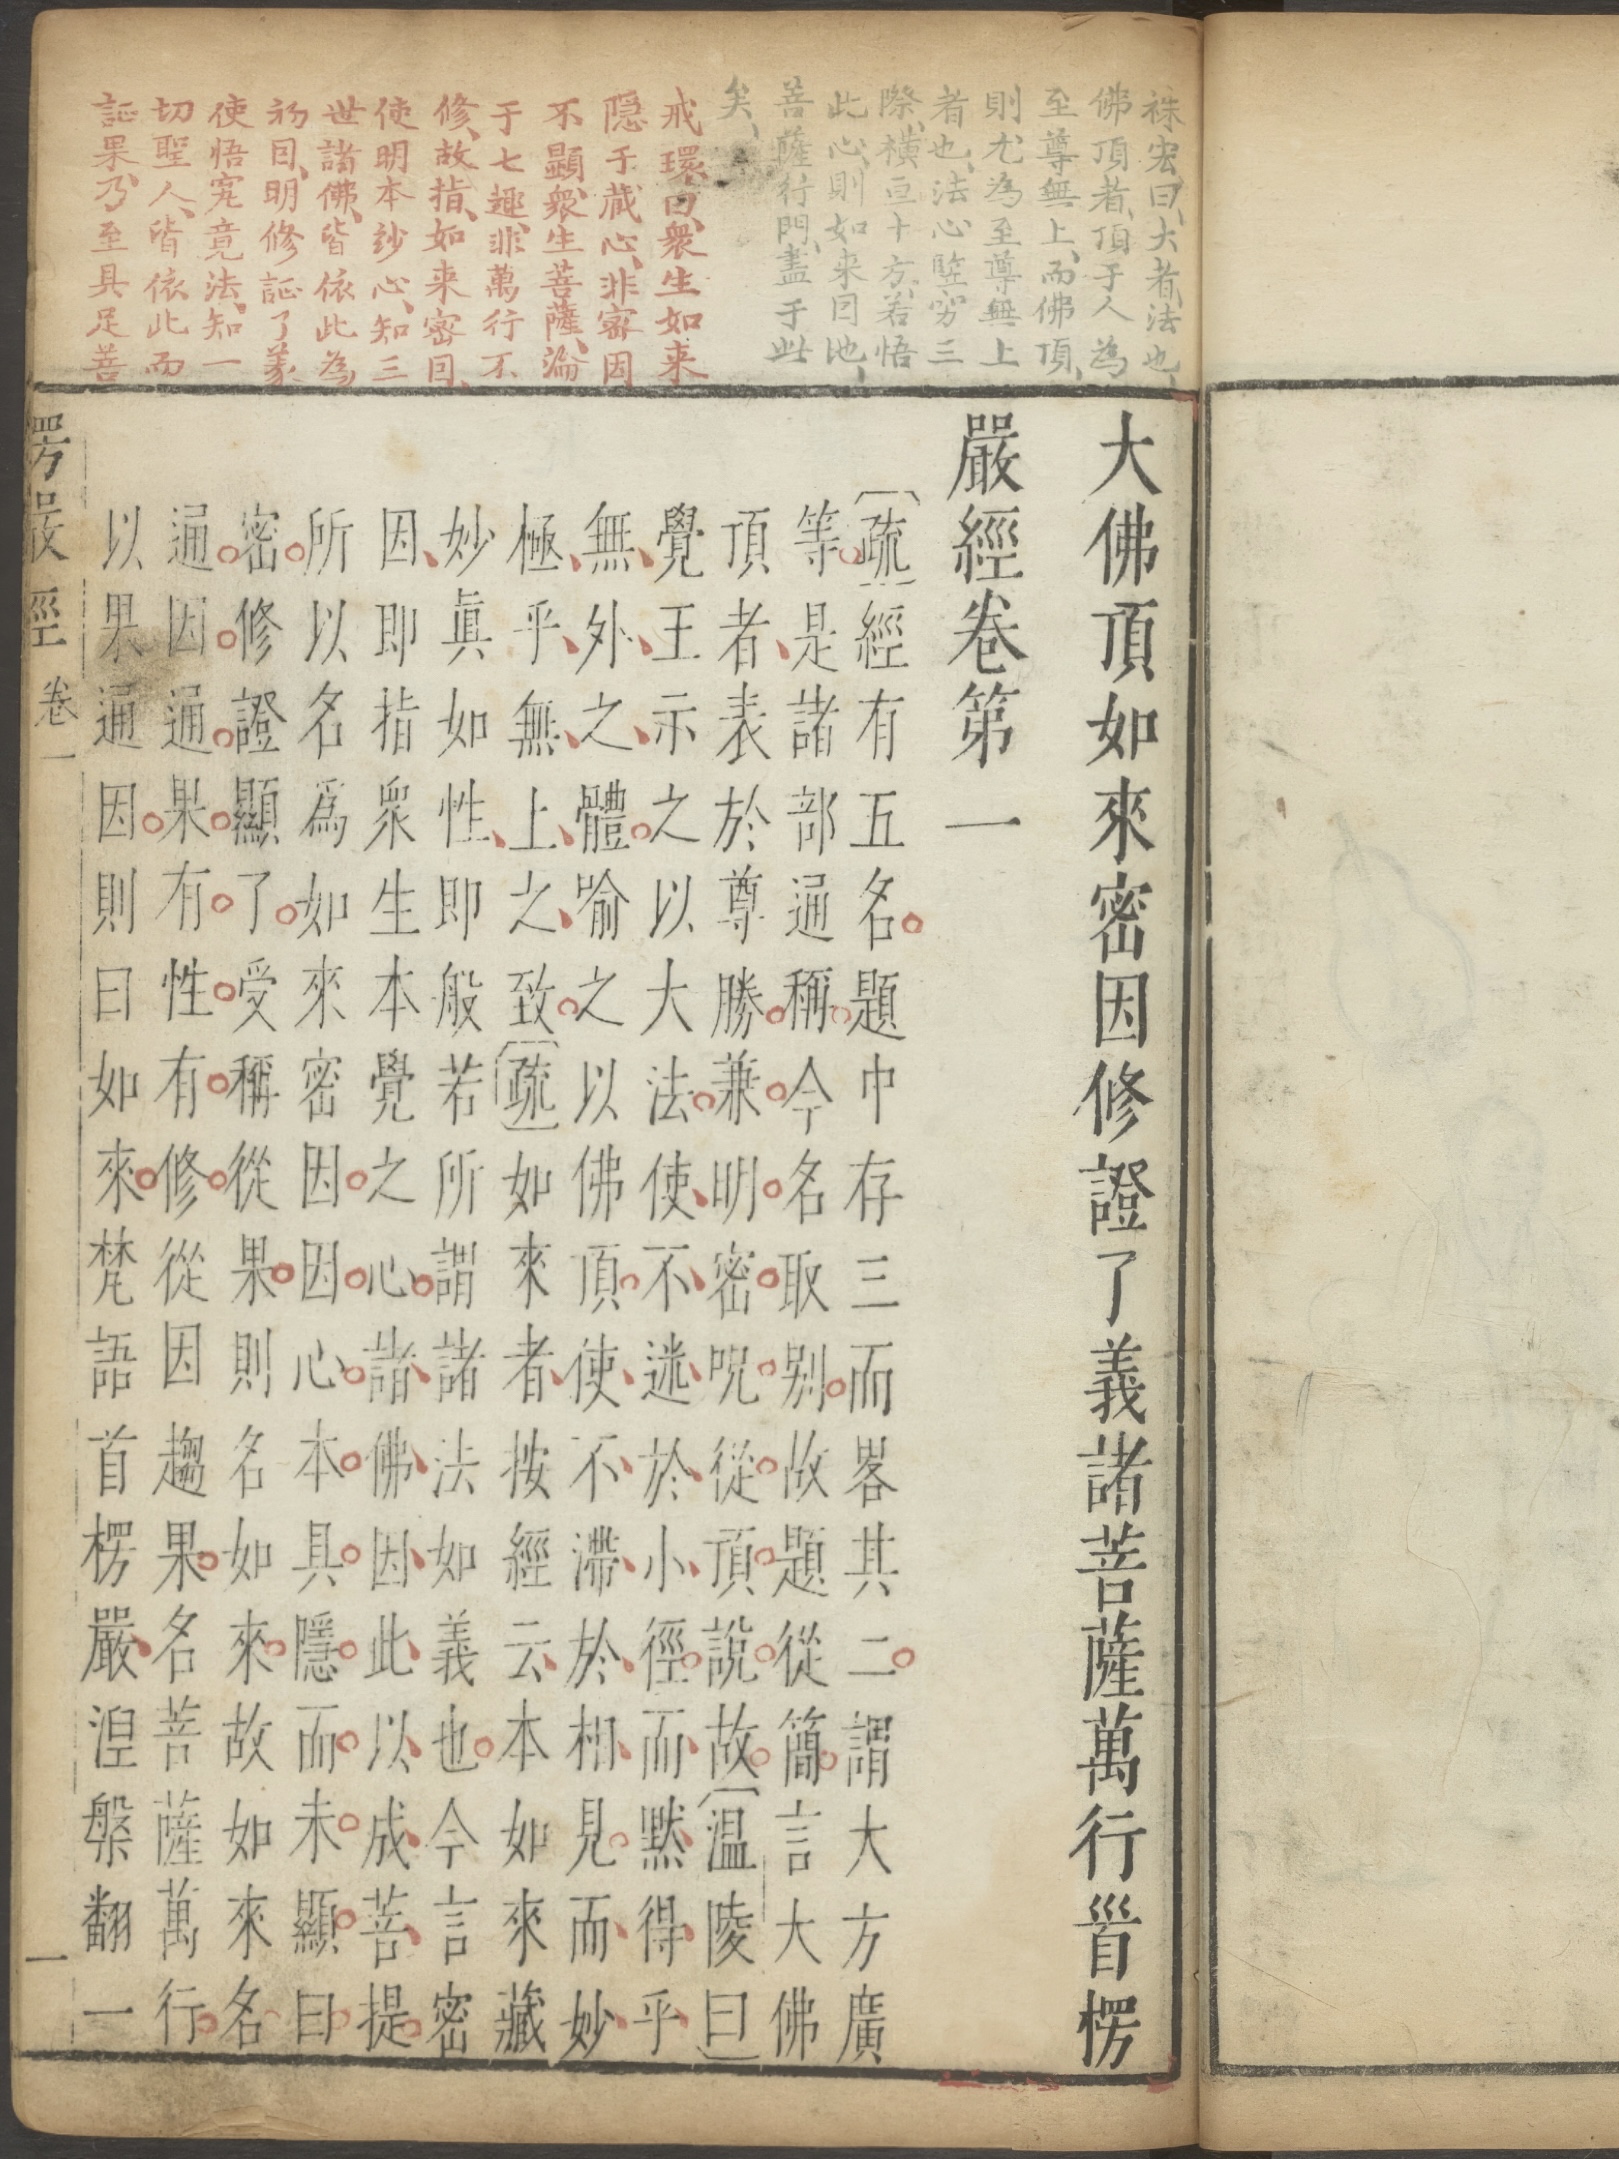 袾宏曰、大者、法也、
佛頂者、頂于人為
至尊無上、而佛頂、
則尤為至尊無上
者也、法心竪窮三
際、橫亘十方、若悟
此心、則如来因地、
菩薩行門、盡于此
矣、
戒環曰、衆生如来
隠于蔵心、非密因
不顯、衆生菩薩、淪
于七趣、非萬行不
修、故指、如来密因、
使明本玅心、知三
世諸佛、皆依此為
初因、明修証了義
使悟究竟法、知一
切聖人、皆依此而
証果、乃至具足菩
大佛頂如來密因修證了義諸菩薩萬行首楞
嚴經卷第一
疏經有五名題中存三而畧其二謂大方廣
等是諸部通稱今名取別故題從簡言大佛
頂者表於尊勝兼明密呪從頂說故温陵曰
覺王示之以大法使不迷於小徑而黙得乎
無外之體喻之以佛頂使不滯於相見而妙
極乎無上之致疏如來者按經云本如來藏
妙眞如性即般若所謂諸法如義也今言密
因即指衆生本覺之心諸佛因此以成菩提
所以名爲如來密因因心本具隱而未顯曰
密修證顯了受稱從果則名如來故如來名
通因通果有性有修從因趨果名菩薩萬行
以果通因則曰如來梵語首楞嚴湼槃翻一
楞嚴經 卷一
一